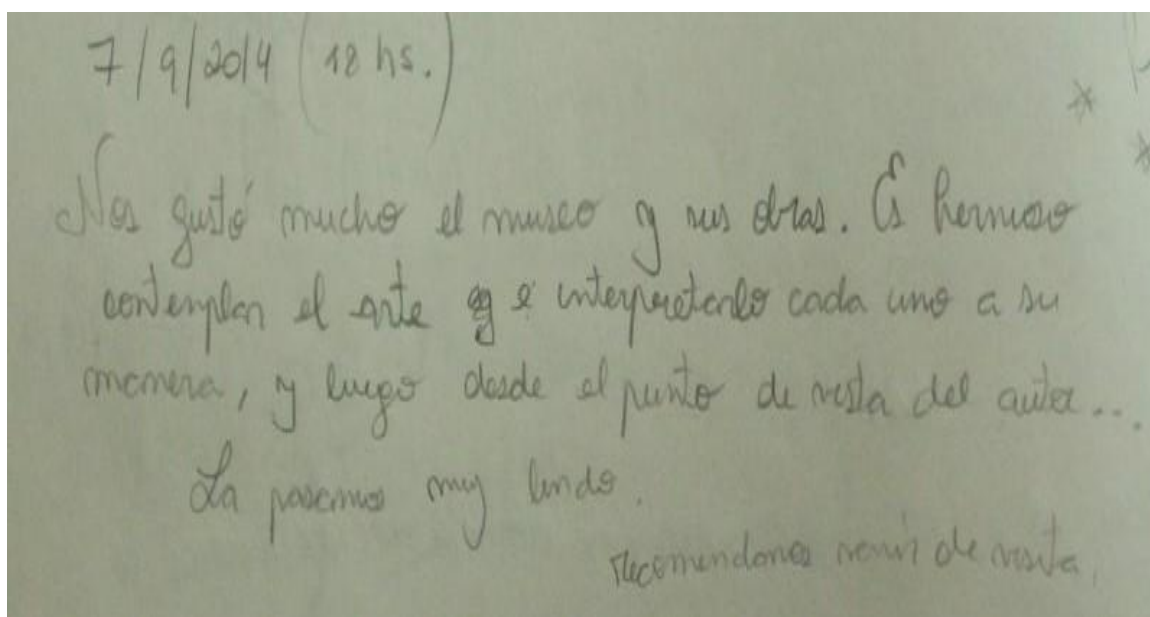 7/9/2014 (18 hs.)
Nos gustó mucho el museo y sus obras. Es hermoso
contemplar el arte e interpretarlo cada uno a su
manera, y luego desde el punto de vista del autor...
La pasamos muy lindo.
recomendamos venir de visita.